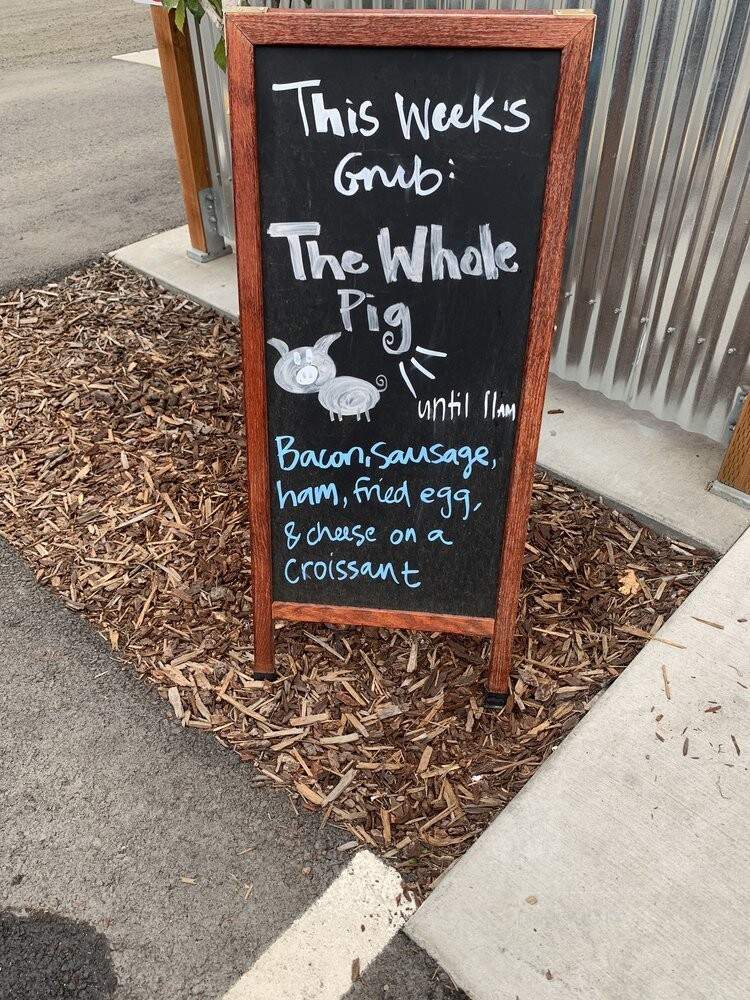 This Week's
Grub:
The Whole
Pig
until 11AM
Bacon, sausage,
ham, fried egg,
& cheese on a
Croissant